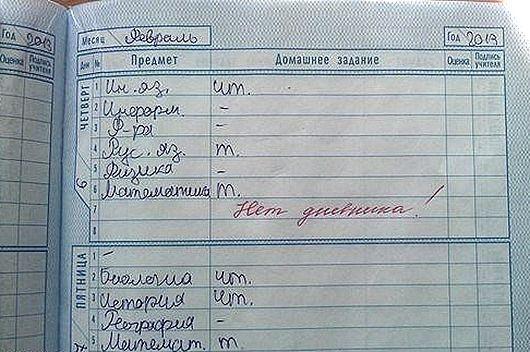 Год 2013
Оценка Подпись учителя
Месяц Февраль Год 2013
Дни № Предмет Домашнее задание Оценка Подпись учителя
ЧЕТВЕРГ 6
1 Ин. яз. чт.
2 Информ. -
3 Ф-ра -
4 Рус. яз. т.
5 Физика -
6 Математика т.
7 Нет дневника!
8
ПЯТНИЦА
1 -
2 биология чт.
3 История чт.
4 География -
5 Математ. т.